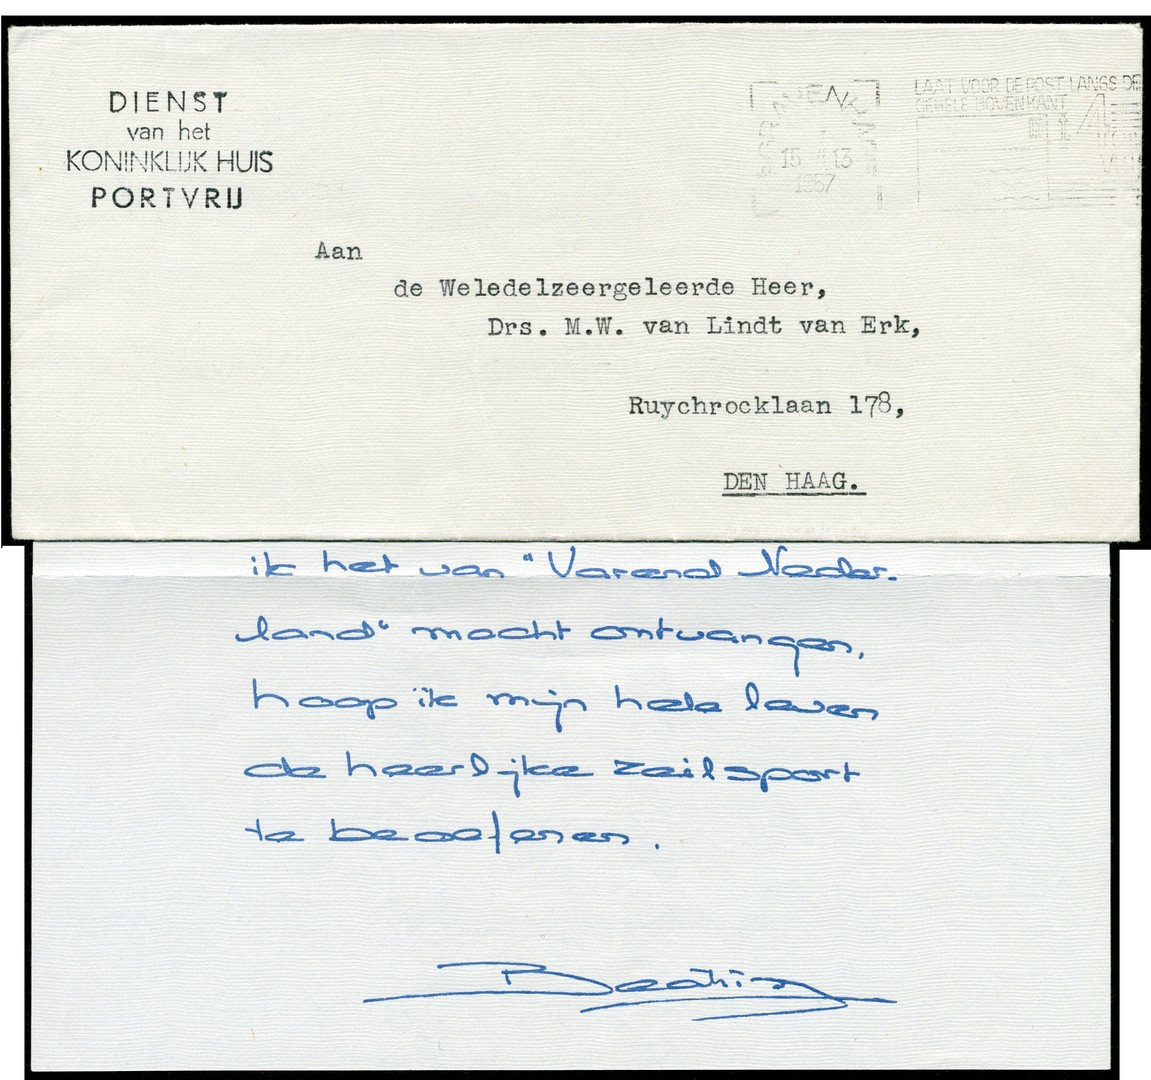 DIENST
van het
KONINKLIJK HUIS
PORTVRIJ
LAAT VOOR DE POST LANGS DE
GEHELE BOVENKANT
4
15 VI 13
1957
Aan
de Weledelzeergeleerde Heer,
Drs. M.W. van Lindt van Erk,
Ruychrocklaan 178,
DEN HAAG.
ik het van "Varend Neder-
land" mocht ontvangen,
hoop ik mijn hele leven
de heerlijke zeilsport
te beoefenen.
Beatrix